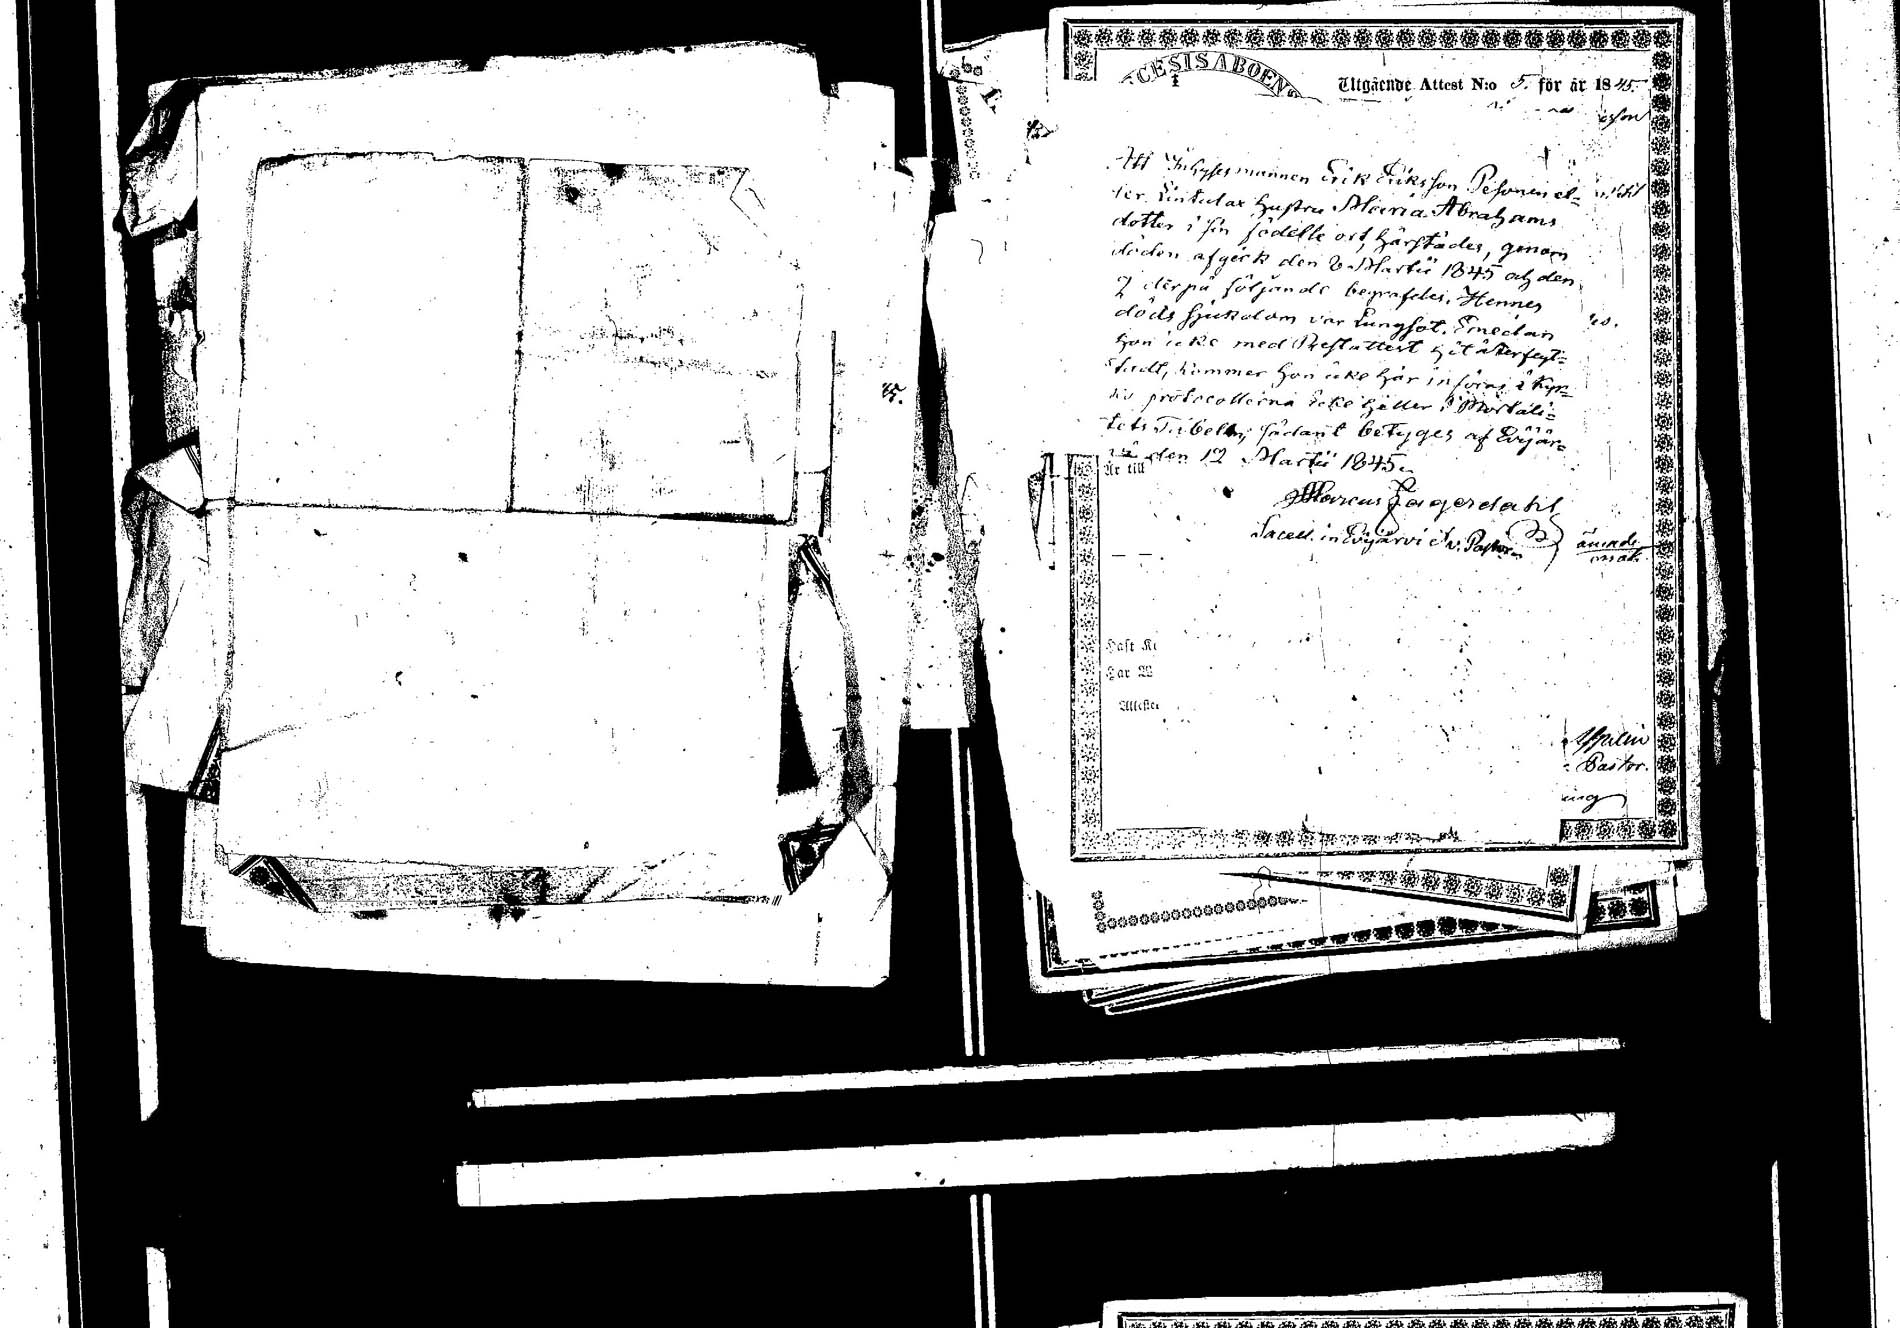 CESIS ABOEN
Utgående Attest N:o 5. för år 1845.
Att Inhysesmannen Erik Eriksson Pesonen el-
ler Lintulax hustru Maria Abrahams
dotter i sin födelse ort, härstädes, genom
döden afgick den 2 Martii 1845 och den
9 derpå följande begrafdes. Hennes
döds sjukdom var Lungsot. Emedan
hon icke med Prestattest hit återflyt-
tadt, kommer hon icke här införas i Kyr-
ko protocollerna icke heller i Mortali-
tets Tabell; sådant betyges af Evijär-
vi den 12 Martii 1845.
Är till
Marcus Fagerdahl
Sacell. in Evijärvi et v. Pastor.
Haft
Har W
Attester
Pastor.
45.